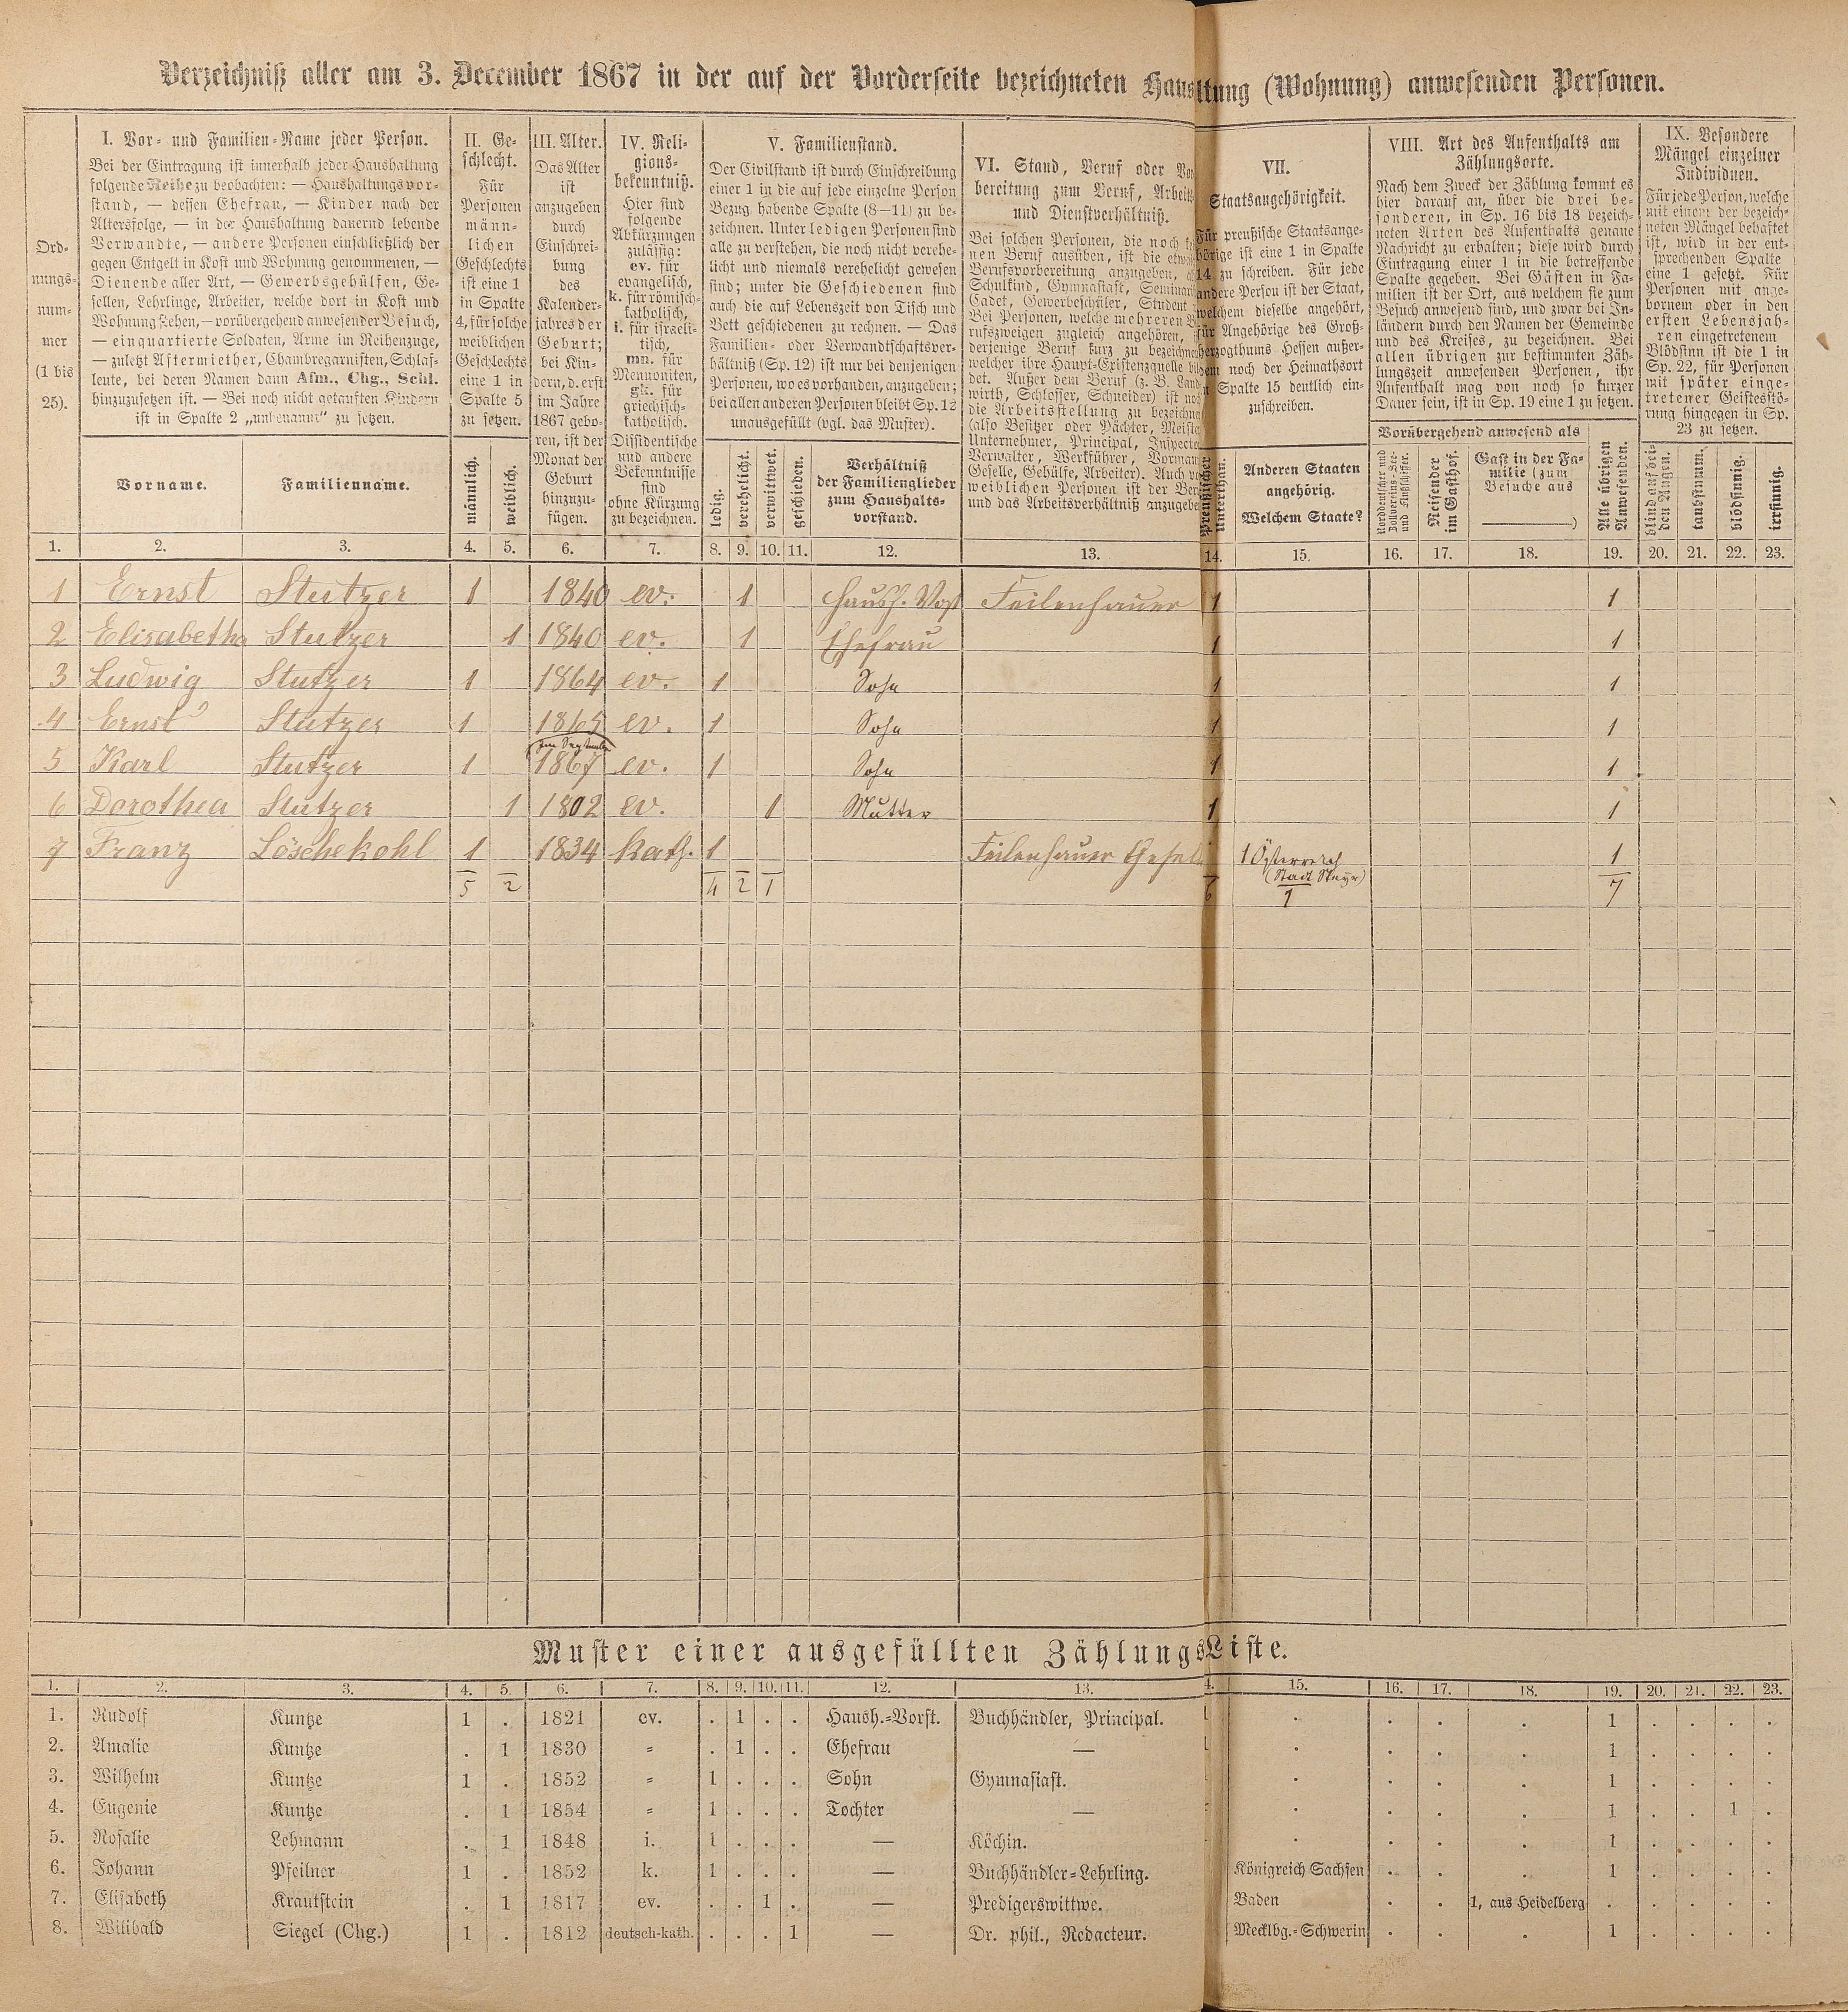 Verzeichniß aller am 3. December 1867 in der auf der Vorderseite bezeichneten Haus ltung (Wohnung) anwesenden Personen.
Ord-
nungs-
num-
mer
(1 bis
25).
I. Vor- und Familien-Name jeder Person.
Bei der Eintragung ist innerhalb jeder Haushaltung
folgende Reihe zu beobachten: — Haushaltungsvor-
stand, — dessen Ehefrau, — Kinder nach der
Altersfolge, — in der Haushaltung dauernd lebende
Verwandte, — andere Personen einschließlich der
gegen Entgelt in Kost und Wohnung genommenen, —
Dienende aller Art, — Gewerbsgehülfen, Ge-
sellen, Lehrlinge, Arbeiter, welche dort in Kost und
Wohnung stehen, — vorübergehend anwesender Besuch,
— einquartierte Soldaten, Arme im Reihenzuge,
— zuletzt Aftermiether, Chambregarnisten, Schlaf-
leute, bei deren Namen dann Afm., Chg., Schl.
hinzuzusetzen ist. — Bei noch nicht getauften Kindern
ist in Spalte 2 „unbenannt“ zu setzen.
Vorname.
Familienname.
II. Ge-
schlecht.
Für
Personen
männ-
lichen
Geschlechts
ist eine 1
in Spalte
4, für solche
weiblichen
Geschlechts
eine 1 in
Spalte 5
zu setzen.
männlich.
weiblich.
III. Alter.
Das Alter
ist
anzugeben
durch
Einschrei-
bung
des
Kalender-
jahres der
Geburt;
bei Kin-
dern, d. erst
im Jahre
1867 gebo-
ren, ist der
Monat der
Geburt
hinzuzu-
fügen.
IV. Reli-
gions-
bekenntniß.
Hier sind
folgende
Abkürzungen
zulässig:
ev. für
evangelisch,
k. für römisch-
katholisch,
i. für israeli-
tisch,
mn. für
Mennoniten,
gk. für
griechisch-
katholisch.
Dissidentische
und andere
Bekenntnisse
sind
ohne Kürzung
zu bezeichnen.
V. Familienstand.
Der Civilstand ist durch Einschreibung
einer 1 in die auf jede einzelne Person
Bezug habende Spalte (8—11) zu be-
zeichnen. Unter ledigen Personen sind
alle zu verstehen, die noch nicht verehe-
licht und niemals verehelicht gewesen
sind; unter die Geschiedenen sind
auch die auf Lebenszeit von Tisch und
Bett geschiedenen zu rechnen. — Das
Familien- oder Verwandtschaftsver-
hältniß (Sp. 12) ist nur bei denjenigen
Personen, wo es vorhanden, anzugeben;
bei allen anderen Personen bleibt Sp. 12
unausgefüllt (vgl. das Muster).
ledig.
verehelicht.
verwittwet.
geschieden.
Verhältniß
der Familienglieder
zum Haushalts-
vorstand.
VI. Stand, Beruf oder Vor
bereitung zum Beruf, Arbeits
und Dienstverhältniß.
Bei solchen Personen, die noch k
nen Beruf ausüben, ist die etwa
Berufsvorbereitung anzugeben, al
Schulkind, Gymnasiast, Seminari
Cadet, Gewerbeschüler, Student
Bei Personen, welche mehreren B
rufszweigen zugleich angehören, i
derjenige Beruf kurz zu bezeichne
welcher ihre Haupt-Existenzquelle bil
det. Außer dem Beruf (z. B. Land
wirth, Schlosser, Schneider) ist noch
die Arbeitsstellung zu bezeichne
(also Besitzer oder Pächter, Meister
Unternehmer, Principal, Inspecto
Verwalter, Werkführer, Vorman
Geselle, Gehülfe, Arbeiter). Auch vo
weiblichen Personen ist der Beru
und das Arbeitsverhältniß anzugebe
VII.
Staatsangehörigkeit.
Für preußische Staatsange-
hörige ist eine 1 in Spalte
14 zu schreiben. Für jede
andere Person ist der Staat,
welchem dieselbe angehört,
für Angehörige des Groß-
herzogthums Hessen außer-
dem noch der Heimathsort
in Spalte 15 deutlich ein-
zuschreiben.
Preußischer
Unterthan.
Anderen Staaten
angehörig.
Welchem Staate?
VIII. Art des Aufenthalts am
Zählungsorte.
Nach dem Zweck der Zählung kommt es
hier darauf an, über die drei be-
sonderen, in Sp. 16 bis 18 bezeich-
neten Arten des Aufenthalts genaue
Nachricht zu erhalten; diese wird durch
Eintragung einer 1 in die betreffende
Spalte gegeben. Bei Gästen in Fa-
milien ist der Ort, aus welchem sie zum
Besuch anwesend sind, und zwar bei In-
ländern durch den Namen der Gemeinde
und des Kreises, zu bezeichnen. Bei
allen übrigen zur bestimmten Zäh-
lungszeit anwesenden Personen, ihr
Aufenthalt mag von noch so kurzer
Dauer sein, ist in Sp. 19 eine 1 zu setzen.
Vorübergehend anwesend als
Norddeutscher und
Zollvereins-See-
und Flußschiffer.
Reisender
im Gasthof.
Gast in der Fa-
milie (zum
Besuche aus
)
Alle übrigen
Anwesenden.
IX. Besondere
Mängel einzelner
Individuen.
Für jede Person, welche
mit einem der bezeich-
neten Mängel behaftet
ist, wird in der ent-
sprechenden Spalte
eine 1 gesetzt. Für
Personen mit ange-
bornem oder in den
ersten Lebensjah-
ren eingetretenem
Blödsinn ist die 1 in
Sp. 22, für Personen
mit später einge-
tretener Geistesstö-
rung hingegen in Sp.
23 zu setzen.
blind auf bei-
den Augen.
taubstumm.
blödsinnig.
irrsinnig.
1. 2. 3. 4. 5. 6. 7. 8. 9. 10. 11. 12. 13. 14. 15. 16. 17. 18. 19. 20. 21. 22. 23.
1 Ernst Stutzer 1 1840 ev. 1 Haush. Vost Feilenhauer 1 1
2 Elisabetha Stutzer 1 1840 ev. 1 Ehefrau 1 1
3 Ludwig Stutzer 1 1864 ev. 1 Sohn 1 1
4 Ernst Stutzer 1 1865 ev. 1 Sohn 1 1
im September
5 Karl Stutzer 1 1867 ev. 1 Sohn 1 1
6 Dorothea Stutzer 1 1802 ev. 1 Mutter 1 1
7 Franz Löschekohl 1 1834 kath. 1 Feilenhauer Gesel 1 Österreich 1
(Stadt Steyr)
5 2 4 2 1 6 1 7
Muster einer ausgefüllten Zählungs Liste.
1. 2. 3. 4. 5. 6. 7. 8. 9. 10. 11. 12. 13. 4. 15. 16. 17. 18. 19. 20. 21. 22. 23.
1. Rudolf Kuntze 1 . 1821 ev. . 1 . . Haush.-Vorst. Buchhändler, Principal. 1 . . . . 1 . . . .
2. Amalie Kuntze . 1 1830 = . 1 . . Ehefrau — 1 . . . . 1 . . . .
3. Wilhelm Kuntze 1 . 1852 = 1 . . . Sohn Gymnasiast. . . . . 1 . . . .
4. Eugenie Kuntze . 1 1854 = 1 . . . Tochter — . . . . 1 . . 1 .
5. Rosalie Lehmann . 1 1848 i. 1 . . . — Köchin. . . . . 1 . . . .
6. Johann Pfeilner 1 . 1852 k. 1 . . . — Buchhändler-Lehrling. Königreich Sachsen . . . 1 . . . .
7. Elisabeth Krautstein . 1 1817 ev. . . 1 . — Predigerswittwe. Baden . . 1, aus Heidelberg . . . . .
8. Wilibald Siegel (Chg.) 1 . 1812 deutsch-kath. . . . 1 — Dr. phil., Redacteur. Mecklbg.-Schwerin . . . 1 . . . .